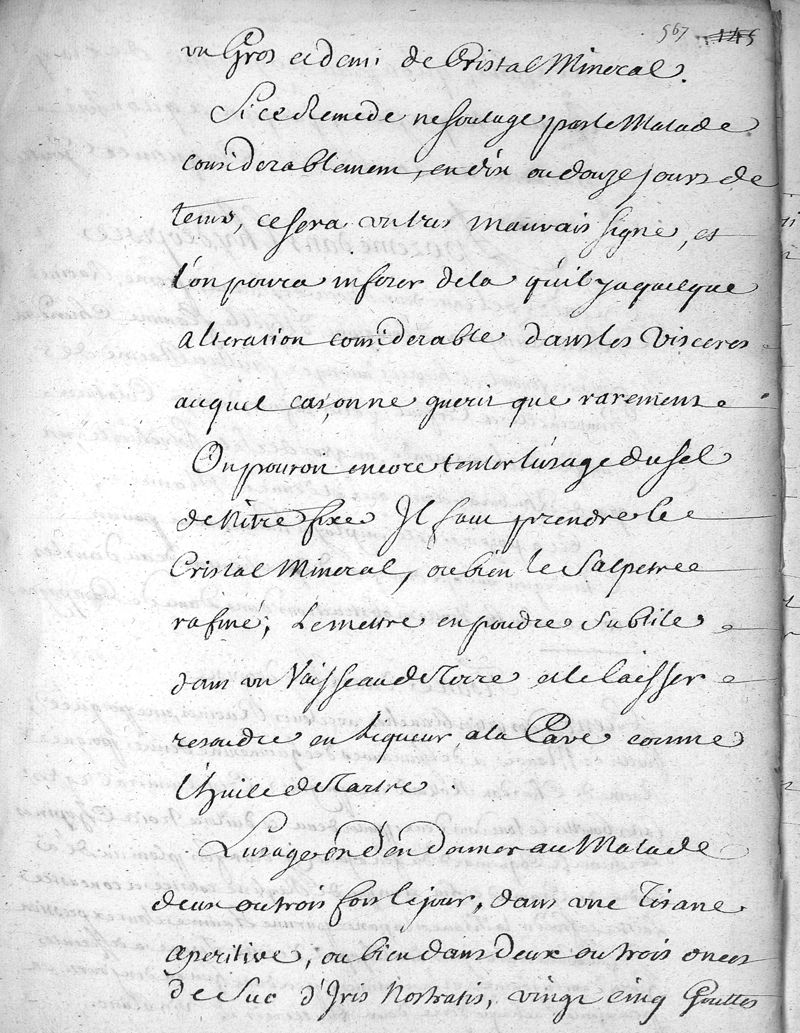 567 145
un Gros et demi de Cristal Mineral.
Si ce Remede ne soulage pas le Malade
considerablement, en dix ou douze jours de
tems, ce sera un tres mauvais signe, et
l'on poura inferer de la qu'il y a quelque
alteration considerable dans les Visceres
auquel cas, on ne guerit que rarement.
On poura encore tenter l'usage du sel
de Nitre fixe. Il faut prendre le
Cristal Mineral, ou bien le Salpetre
rafiné; Le mettre en poudre subtile
dans un Vaisseau de Terre et le laisser
resoudre en Liqueur a la Cave comme
l'huile de Tartre.
L'usage en d'en donner au Malade
deux ou trois fois le jour, dans une Tisane
aperitive, ou bien dans deux ou trois onces
de Suc d'Iris Nostratis, vingt cinq Gouttes